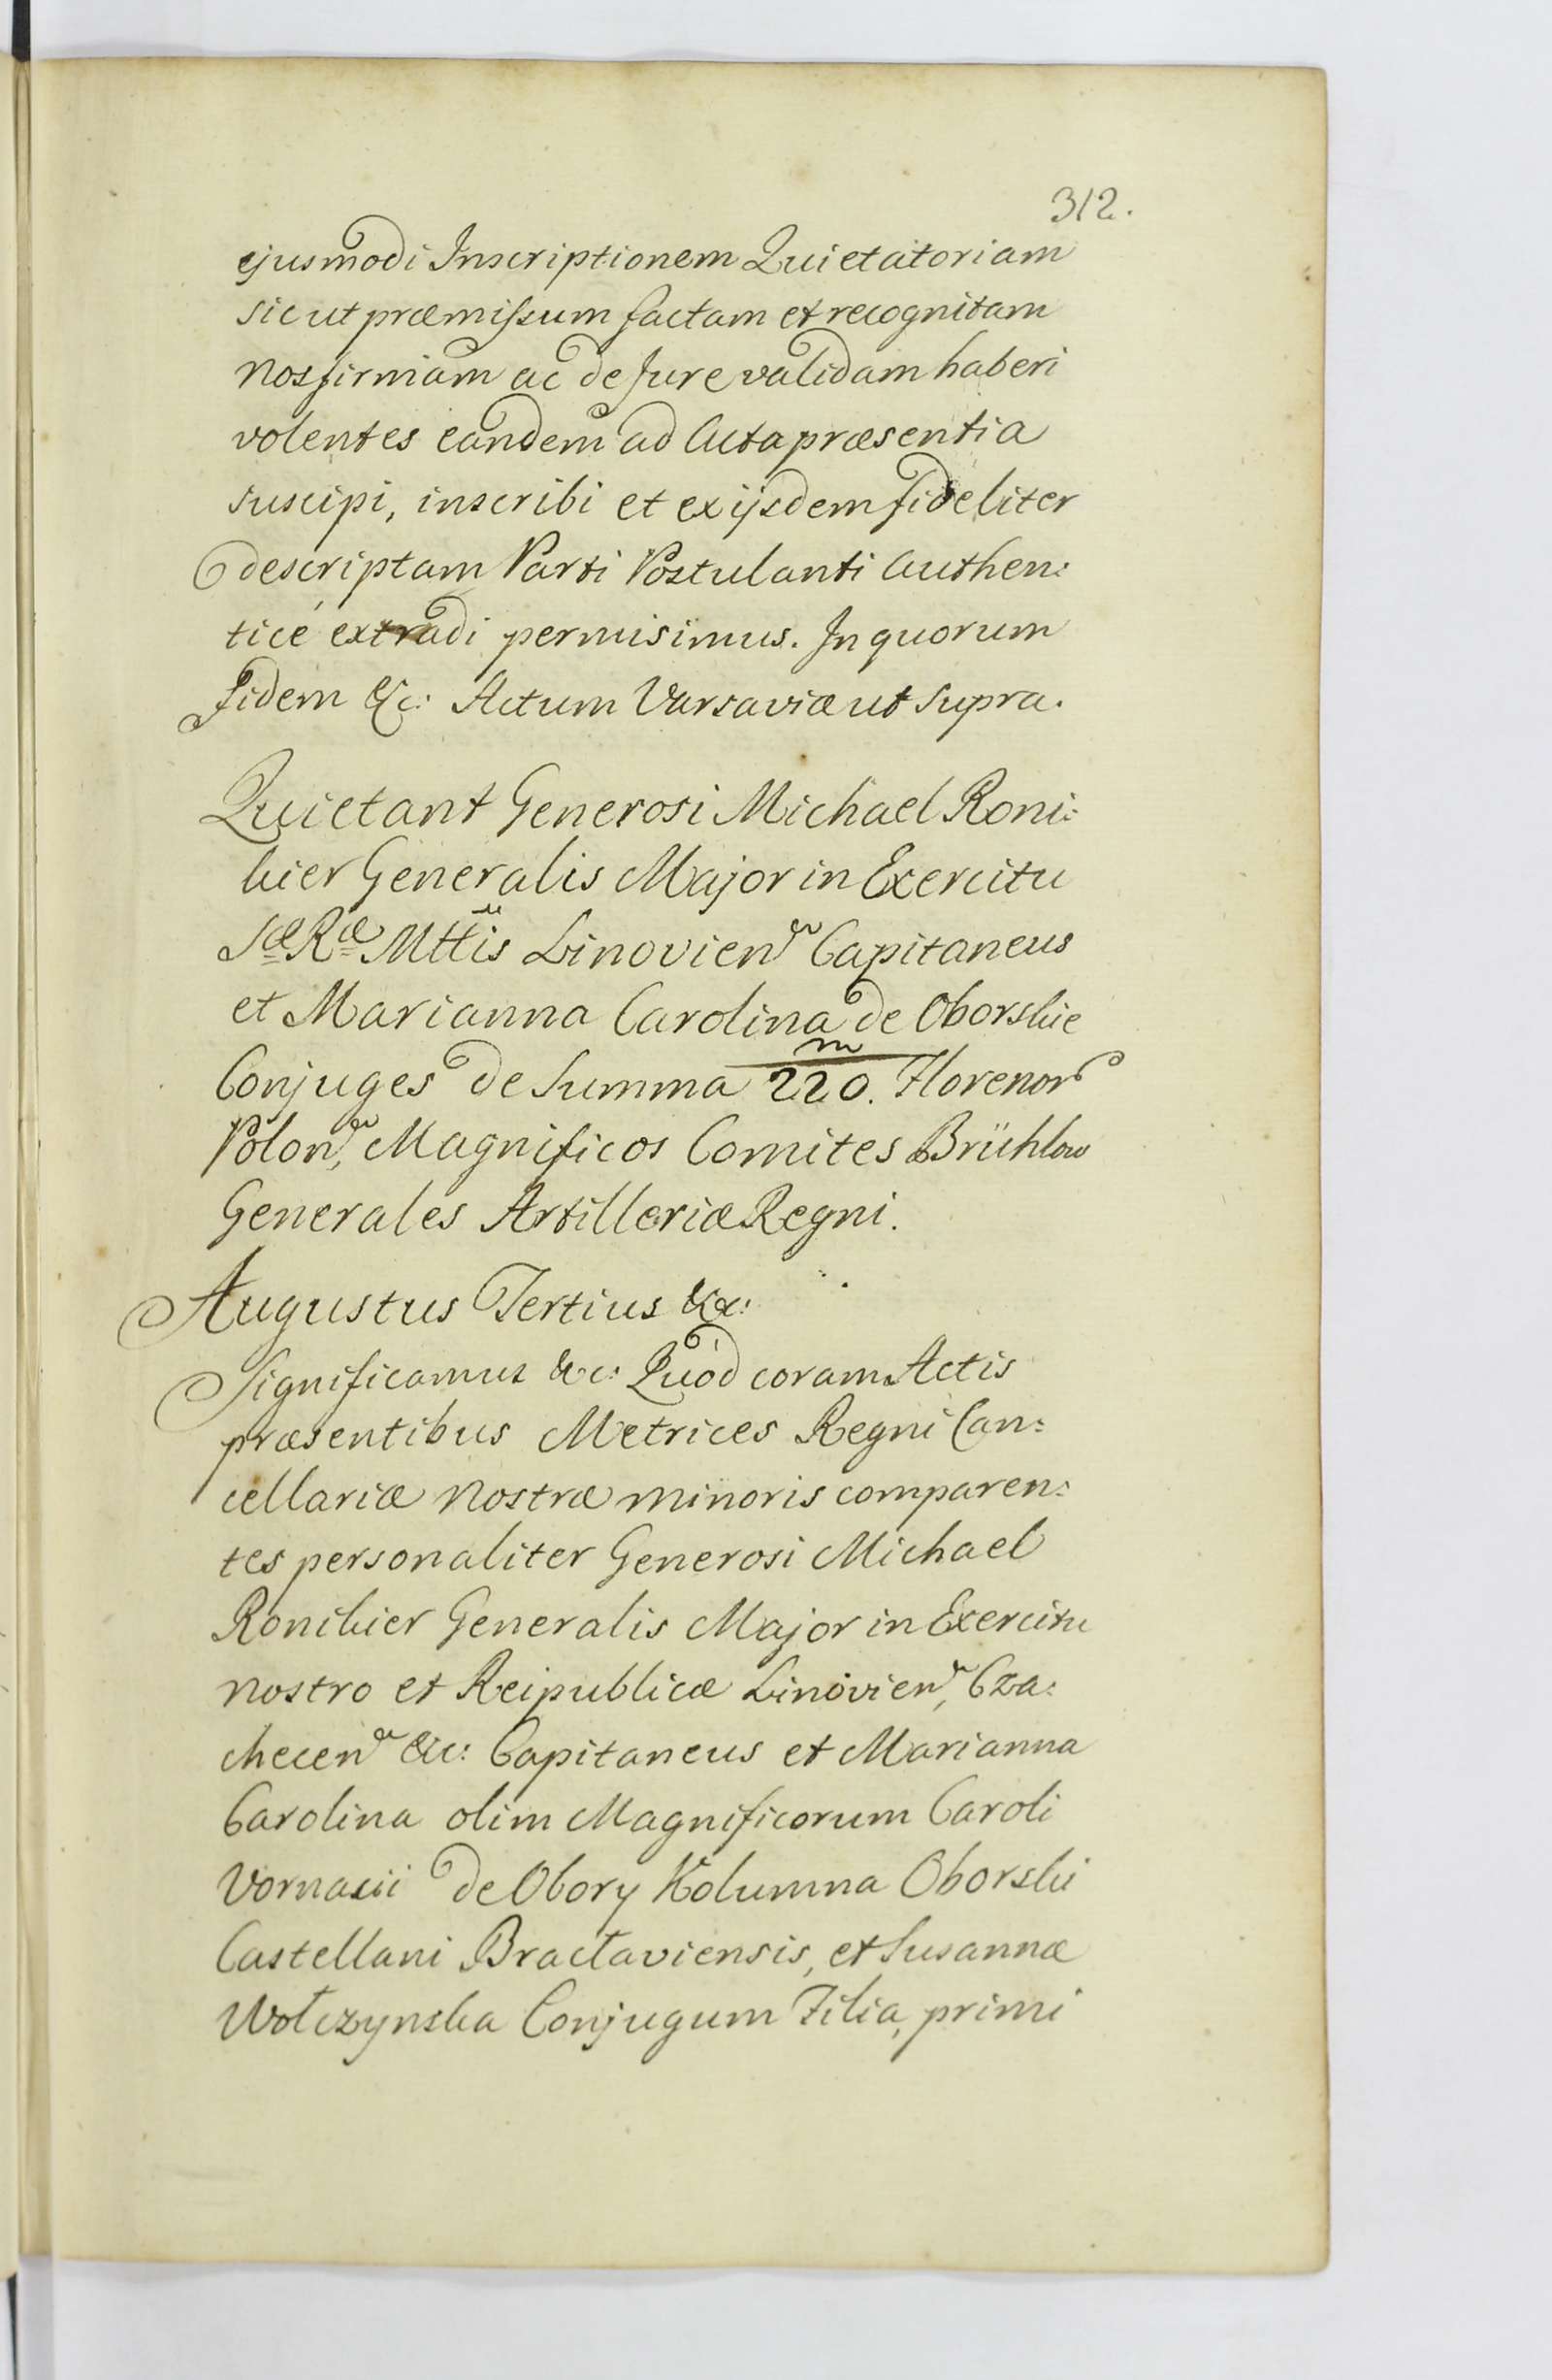 312.
ejusmodi Inscriptionem Quietatoriam
sicut præmissum factam et recognitam
Nos firmam ac de Jure validam haberi
volentes eandem ad Acta præsentia
suscipi, inscribi et ex ijsdem fideliter
descriptam Parti Postulanti Authen:
ticé extradi permisimus. In quorum
fidem &c: Actum Varsaviæ ut supra.
Quietant Generosi Michael Roni:
kier Generalis Major in Exercitu
Sæ Ræ Mttis Linovien Capitaneus
et Marianna Carolina de Oborskie
Conjuges de Summa 220. m Florenor
Polon, Magnificos Comites Brühlow
Generales Artilleriæ Regni.
Augustus Tertius &c:
Significamus &c: Quòd coram Actis
præsentibus Metrices Regni Can:
cellariæ Nostræ minoris comparen:
tes personaliter Generosi Michael
Ronikier Generalis Major in Exercitu
Nostro et Reipublicæ Linovien, Cza:
checen &c: Capitaneus et Marianna
Carolina olim Magnificorum Caroli
de Obory Kolumna Oborski
Castellani Bractaviensis, et Susannæ
Wołczynska Conjugum Filia, primi